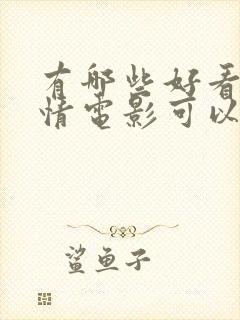 有哪些好看
情电影可以
鲨鱼子